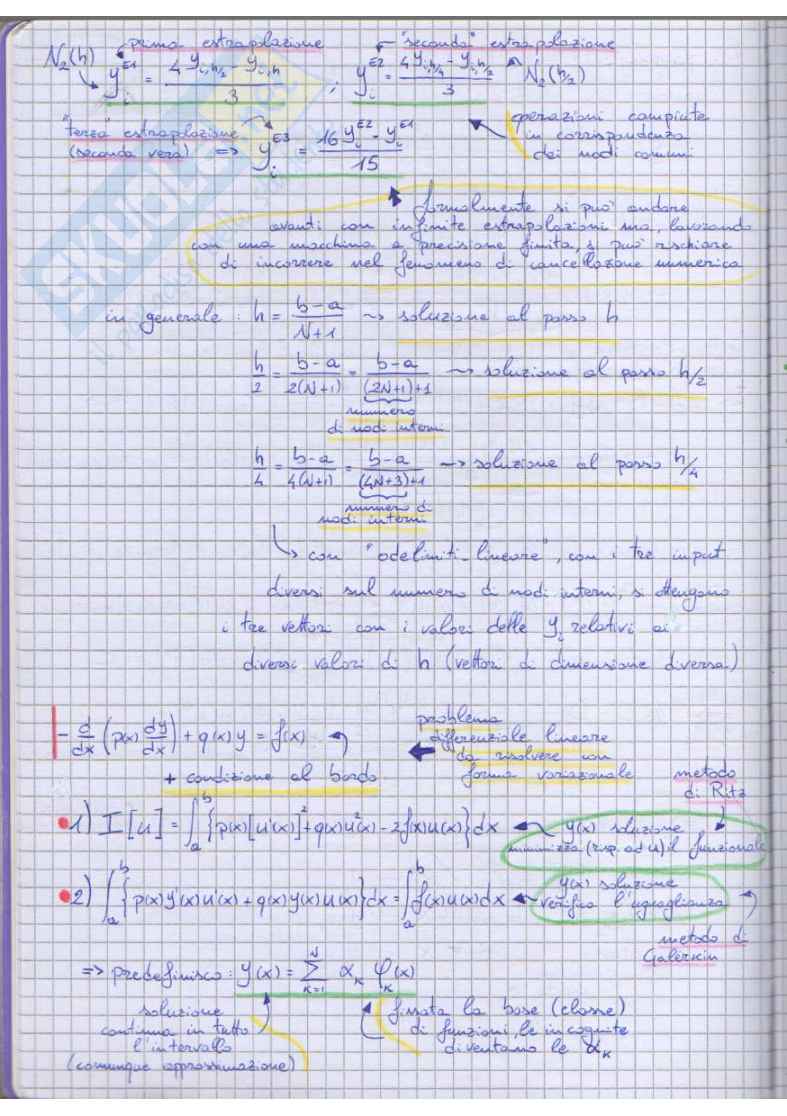 prima estrapolazione
"seconda" estrapolazione
N₂(h) y_i^{E1} = (4 y_{i,h/2} - y_{i,h}) / 3 ; y_i^{E2} = (4 y_{i,h/4} - y_{i,h/2}) / 3 N₂(h/2)
operazioni compiute
in corrispondenza
dei nodi comuni
"terza" estrapolazione
(seconda vera) => y_i^{E3} = (16 y_i^{E2} - y_i^{E1}) / 15
formalmente si può andare
avanti con infinite estrapolazioni ma, lavorando
con una macchina a precisione finita, si può rischiare
di incorrere nel fenomeno di cancellazione numerica
in generale : h = (b-a) / (N+1) ~> soluzione al passo h
h/2 = (b-a) / (2(N+1)) = (b-a) / ((2N+1)+1) ~> soluzione al passo h/2
numero
di nodi interni
h/4 = (b-a) / (4(N+1)) = (b-a) / ((4N+3)+1) ~> soluzione al passo h/4
numero di
nodi interni
↳ con "odelimiti_lineare", con i tre input
diversi sul numero di nodi interni, si ottengono
i tre vettori con i valori delle y_i relativi ai
diversi valori di h (vettori di dimensione diversa)
- d/dx (p(x) dy/dx) + q(x) y = f(x)
+ condizione al bordo
problema
differenziale lineare
da risolvere con
forma variazionale
metodo
di Ritz
1) I[u] = ∫_a^b {p(x)[u'(x)]² + q(x)u²(x) - 2f(x)u(x)} dx
y(x) soluzione
minimizza (risp. ad u) il funzionale
2) ∫_a^b {p(x)y'(x)u'(x) + q(x)y(x)u(x)} dx = ∫_a^b f(x)u(x)dx
y(x) soluzione
verifica l'uguaglianza
metodo di
Galerkin
=> predefinisco : y(x) = Σ_{k=1}^{N} α_k φ_k(x)
soluzione
continua in tutto
l'intervallo
(comunque approssimazione)
fissata la base (classe)
di funzioni, le incognite
diventano le α_k